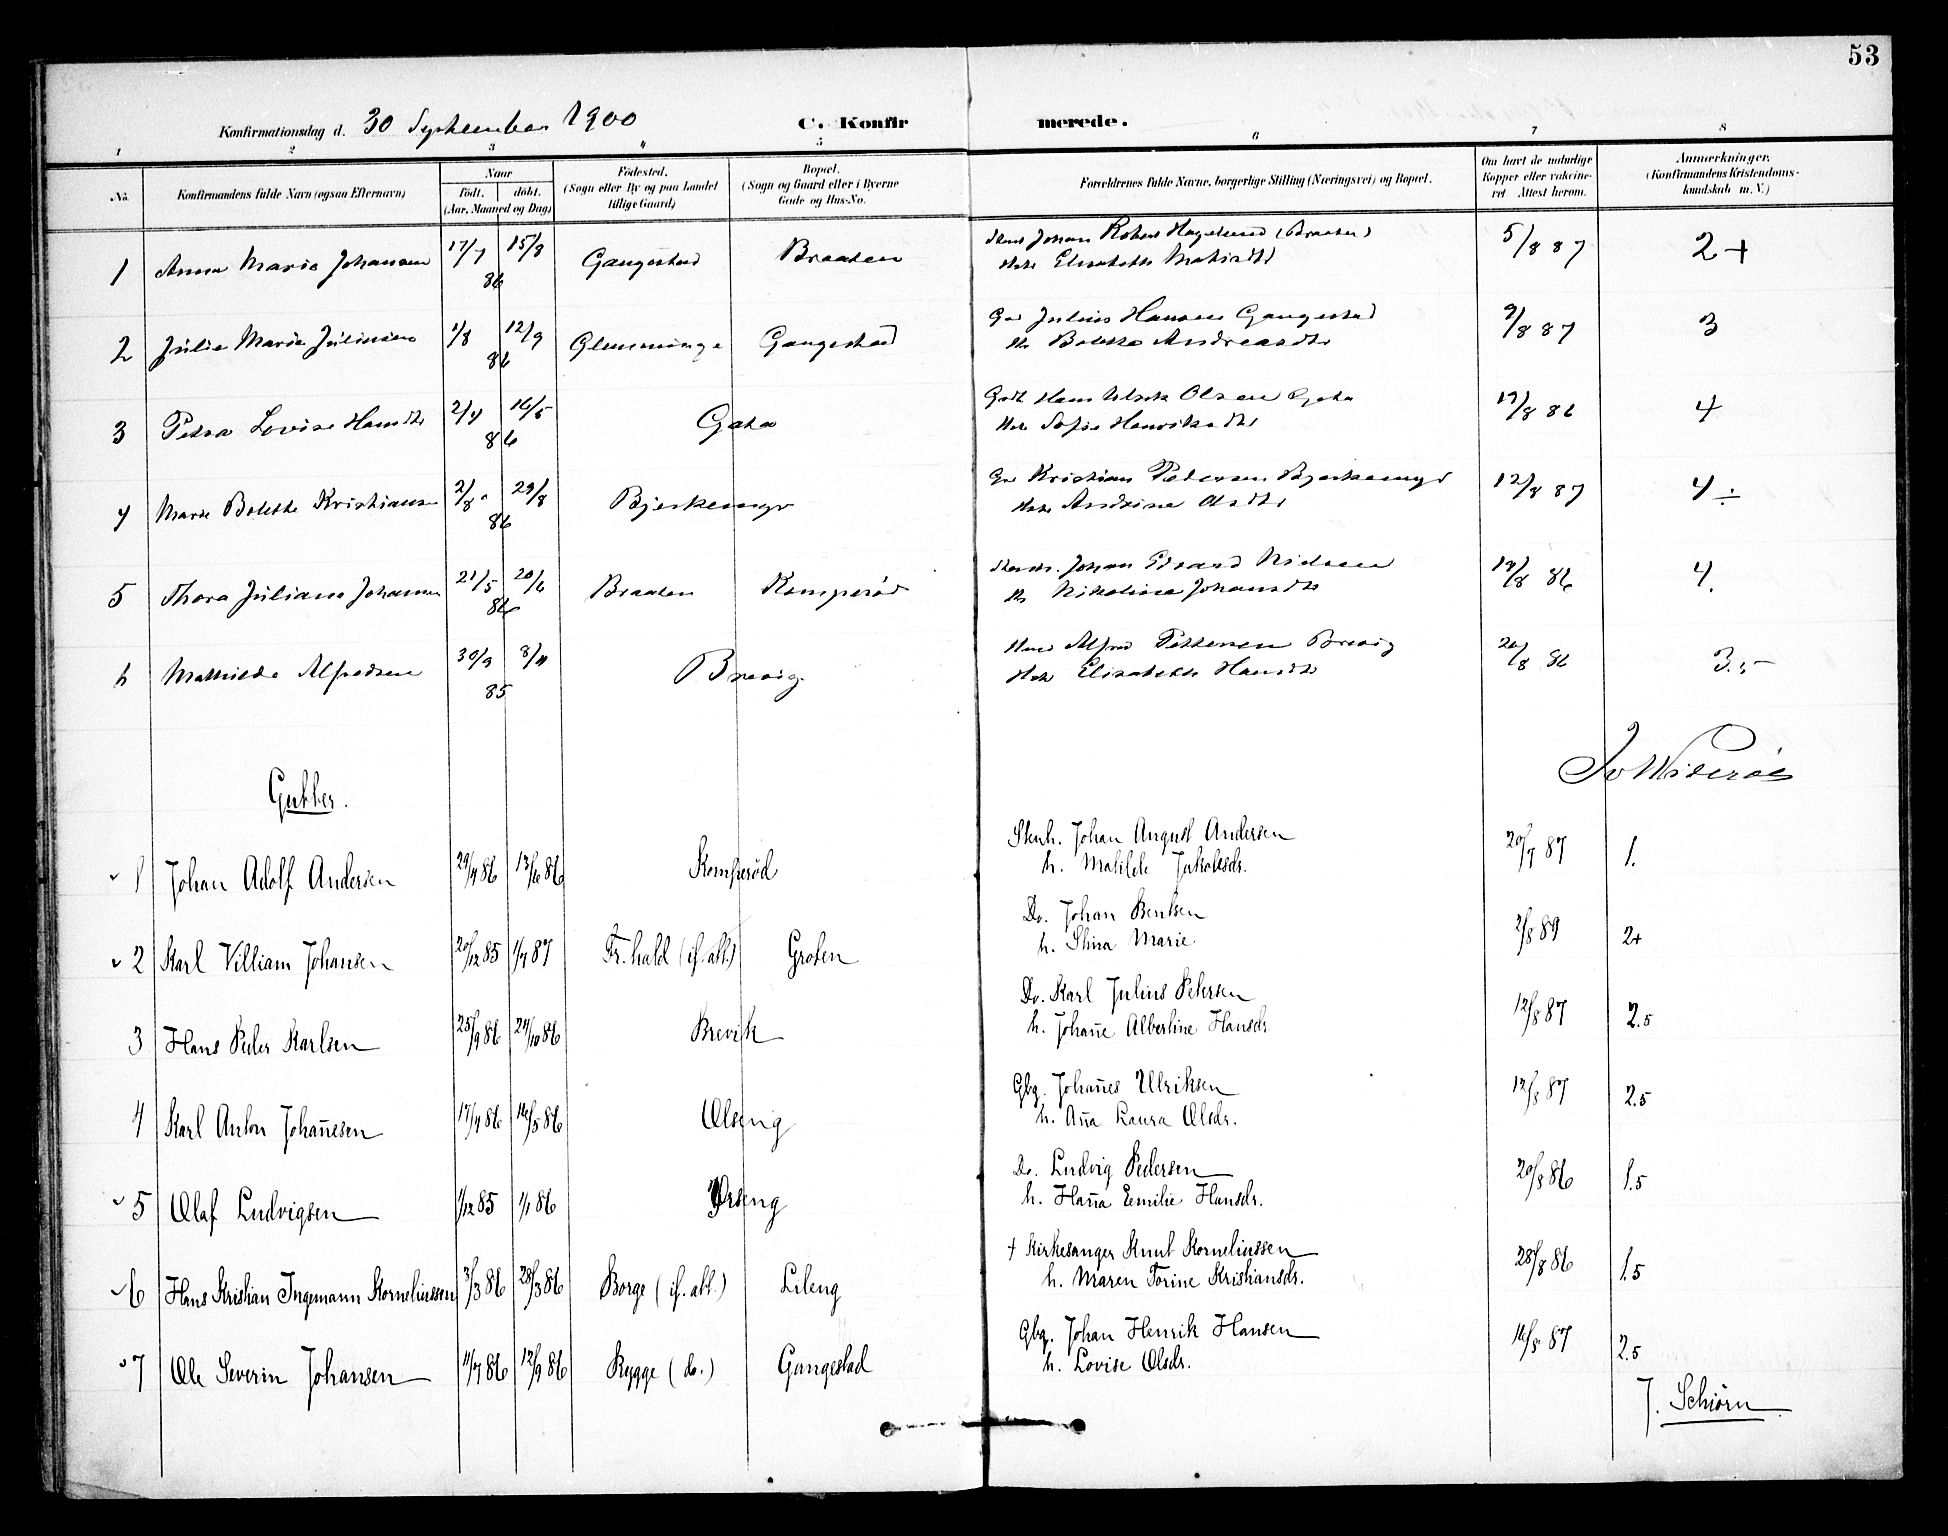 53
Konfirmationsdag d. 30 September 1900 C. Konfirmerede.
1 2 3 4 5 6 7 8
No. Konfirmandens fulde Navn (ogsaa Efternavn) Naar født. døbt. (Aar, Maaned og Dag) Fødested. (Sogn eller By og paa Landet tillige Gaard) Bopæl. (Sogn og Gaard eller i Byerne Gade og Hus-No. Forældrenes fulde Navne, borgerlige Stilling (Næringsvei) og Bopæl. Om havt de naturlige Kopper eller vaccineret Attest herom. Anmærkninger. (Konfirmandens Kristendomskundskab m. V.)
1 Anna Marie Johansen 17/7 15/8 86 Gangestad Braaten Johan Robert Hagelund (Braaten) Elisabeth 5/8 87 2+
2 Julie Marie Juliussen 1/8 12/9 86 Glemminge Gangestad Julius Hansen Gangestad Bolette Andreasdtr 9/8 87 3
3 Petra Lovise Hansdtr 2/4 16/5 86 Gata Hans Olsen Gata Sofie Henriksdtr 19/8 86 4
4 Marie Bolette Kristiansen 2/8 29/8 86 Bjerkemyr Kristian Pedersen Bjerkemyr Andrine Olsdtr 12/8 87 4 ÷
5 Thora Juliane Johansen 21/5 20/6 86 Braaten Komperød Johan Edvard Nilsen Nikoline Johansdtr 19/8 86 4.
6 Mathilde Alfredsen 30/9 8/11 85 Brevig Alfred Pettersen Brevig Elisabeth Hansdtr 20/8 86 3.5
Gutter.
1 Johan Adolf Andersen 29/4 86 13/6 86 Komperød Stenh. Johan August Andersen h. Matilde Jakobsdr. 20/7 87 1.
2 Karl Villiam Johansen 20/12 85 1/4 87 Fr.hald (if. att.) Groten Do. Johan Bentsen h. Stina Marie 2/8 89 2+
3 Hans Peder Karlsen 25/9 86 24/10 86 Brevik Do. Karl Julius Petersen h. Johan̄e Albertine Hansdr. 12/8 87 2.5
4 Karl Anton Johan̄esen 17/4 86 16/5 86 Olseng Gbg. Johan̄es Ulriksen h. An̄a Laura Olsdr. 12/8 87 2.5
5 Olaf Ludvigsen 1/12 85 1/1 86 Do. Ludvig Pedersen h. Han̄a Emilie Hansdr. 20/8 86 1.5
6 Hans Kristian Ingemann Korneliussen 3/3 86 28/3 86 Borge (if. att.) Lileng + Kirkesanger Knut Korneliussen h. Maren Torine Kristiansdr. 28/8 86 1.5
7 Ole Severin Johansen 11/7 86 12/9 86 Rygge (do.) Gangestad Gbg. Johan Henrik Hansen h. Lovise Olsdr. 16/8 87 2.5
J. Schiørn